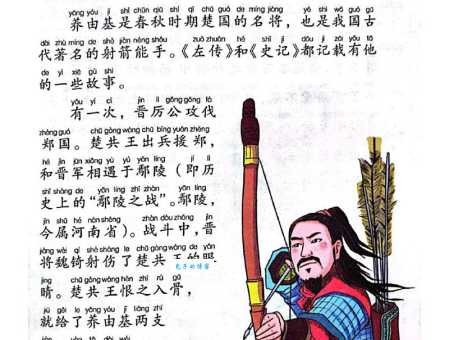 yǎng yóu jī shì chūn qiū shí qī chǔ guó de míng jiàng yě shì wǒ guó gǔ
养由基是春秋时期楚国的名将，也是我国古
dài zhù míng de shè jiàn néng shǒu zuǒ zhuàn hé shǐ jì dōu jì zǎi yǒu tā
代著名的射箭能手。《左传》和《史记》都记载有他
de yì xiē gù shi
的一些故事。
yǒu yí cì jìn lì gōng gōng fá
有一次，晋厉公攻伐
zhèng guó chǔ gòng wáng chū bīng yuán zhèng
郑国。楚共王出兵援郑，
hé jìn jūn xiāng yù yú yān líng jí lì
和晋军相遇于鄢陵（即历
shǐ shàng de yān líng zhī zhàn yān líng
史上的“鄢陵之战”。鄢陵，
jīn shǔ hé nán shěng zhàn dòu zhōng jìn
今属河南省）。战斗中，晋
jiàng wèi qí shè shāng le chǔ gòng wáng de yǎn
将魏锜射伤了楚共 的眼
jing chǔ gòng wáng hèn zhī rù gǔ
睛。楚共王恨之入骨，
jiù gěi le yǎng yóu jī liǎng zhī
就给了养由基两支
jiàn yào tā dài